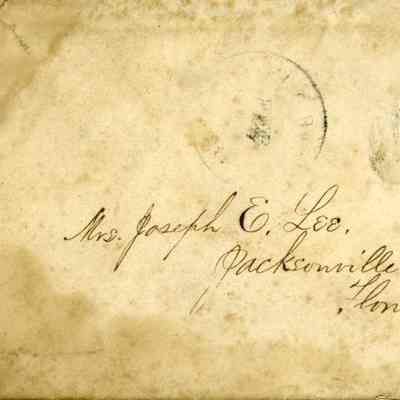 Mrs. Joseph E. Lee.
Jacksonville